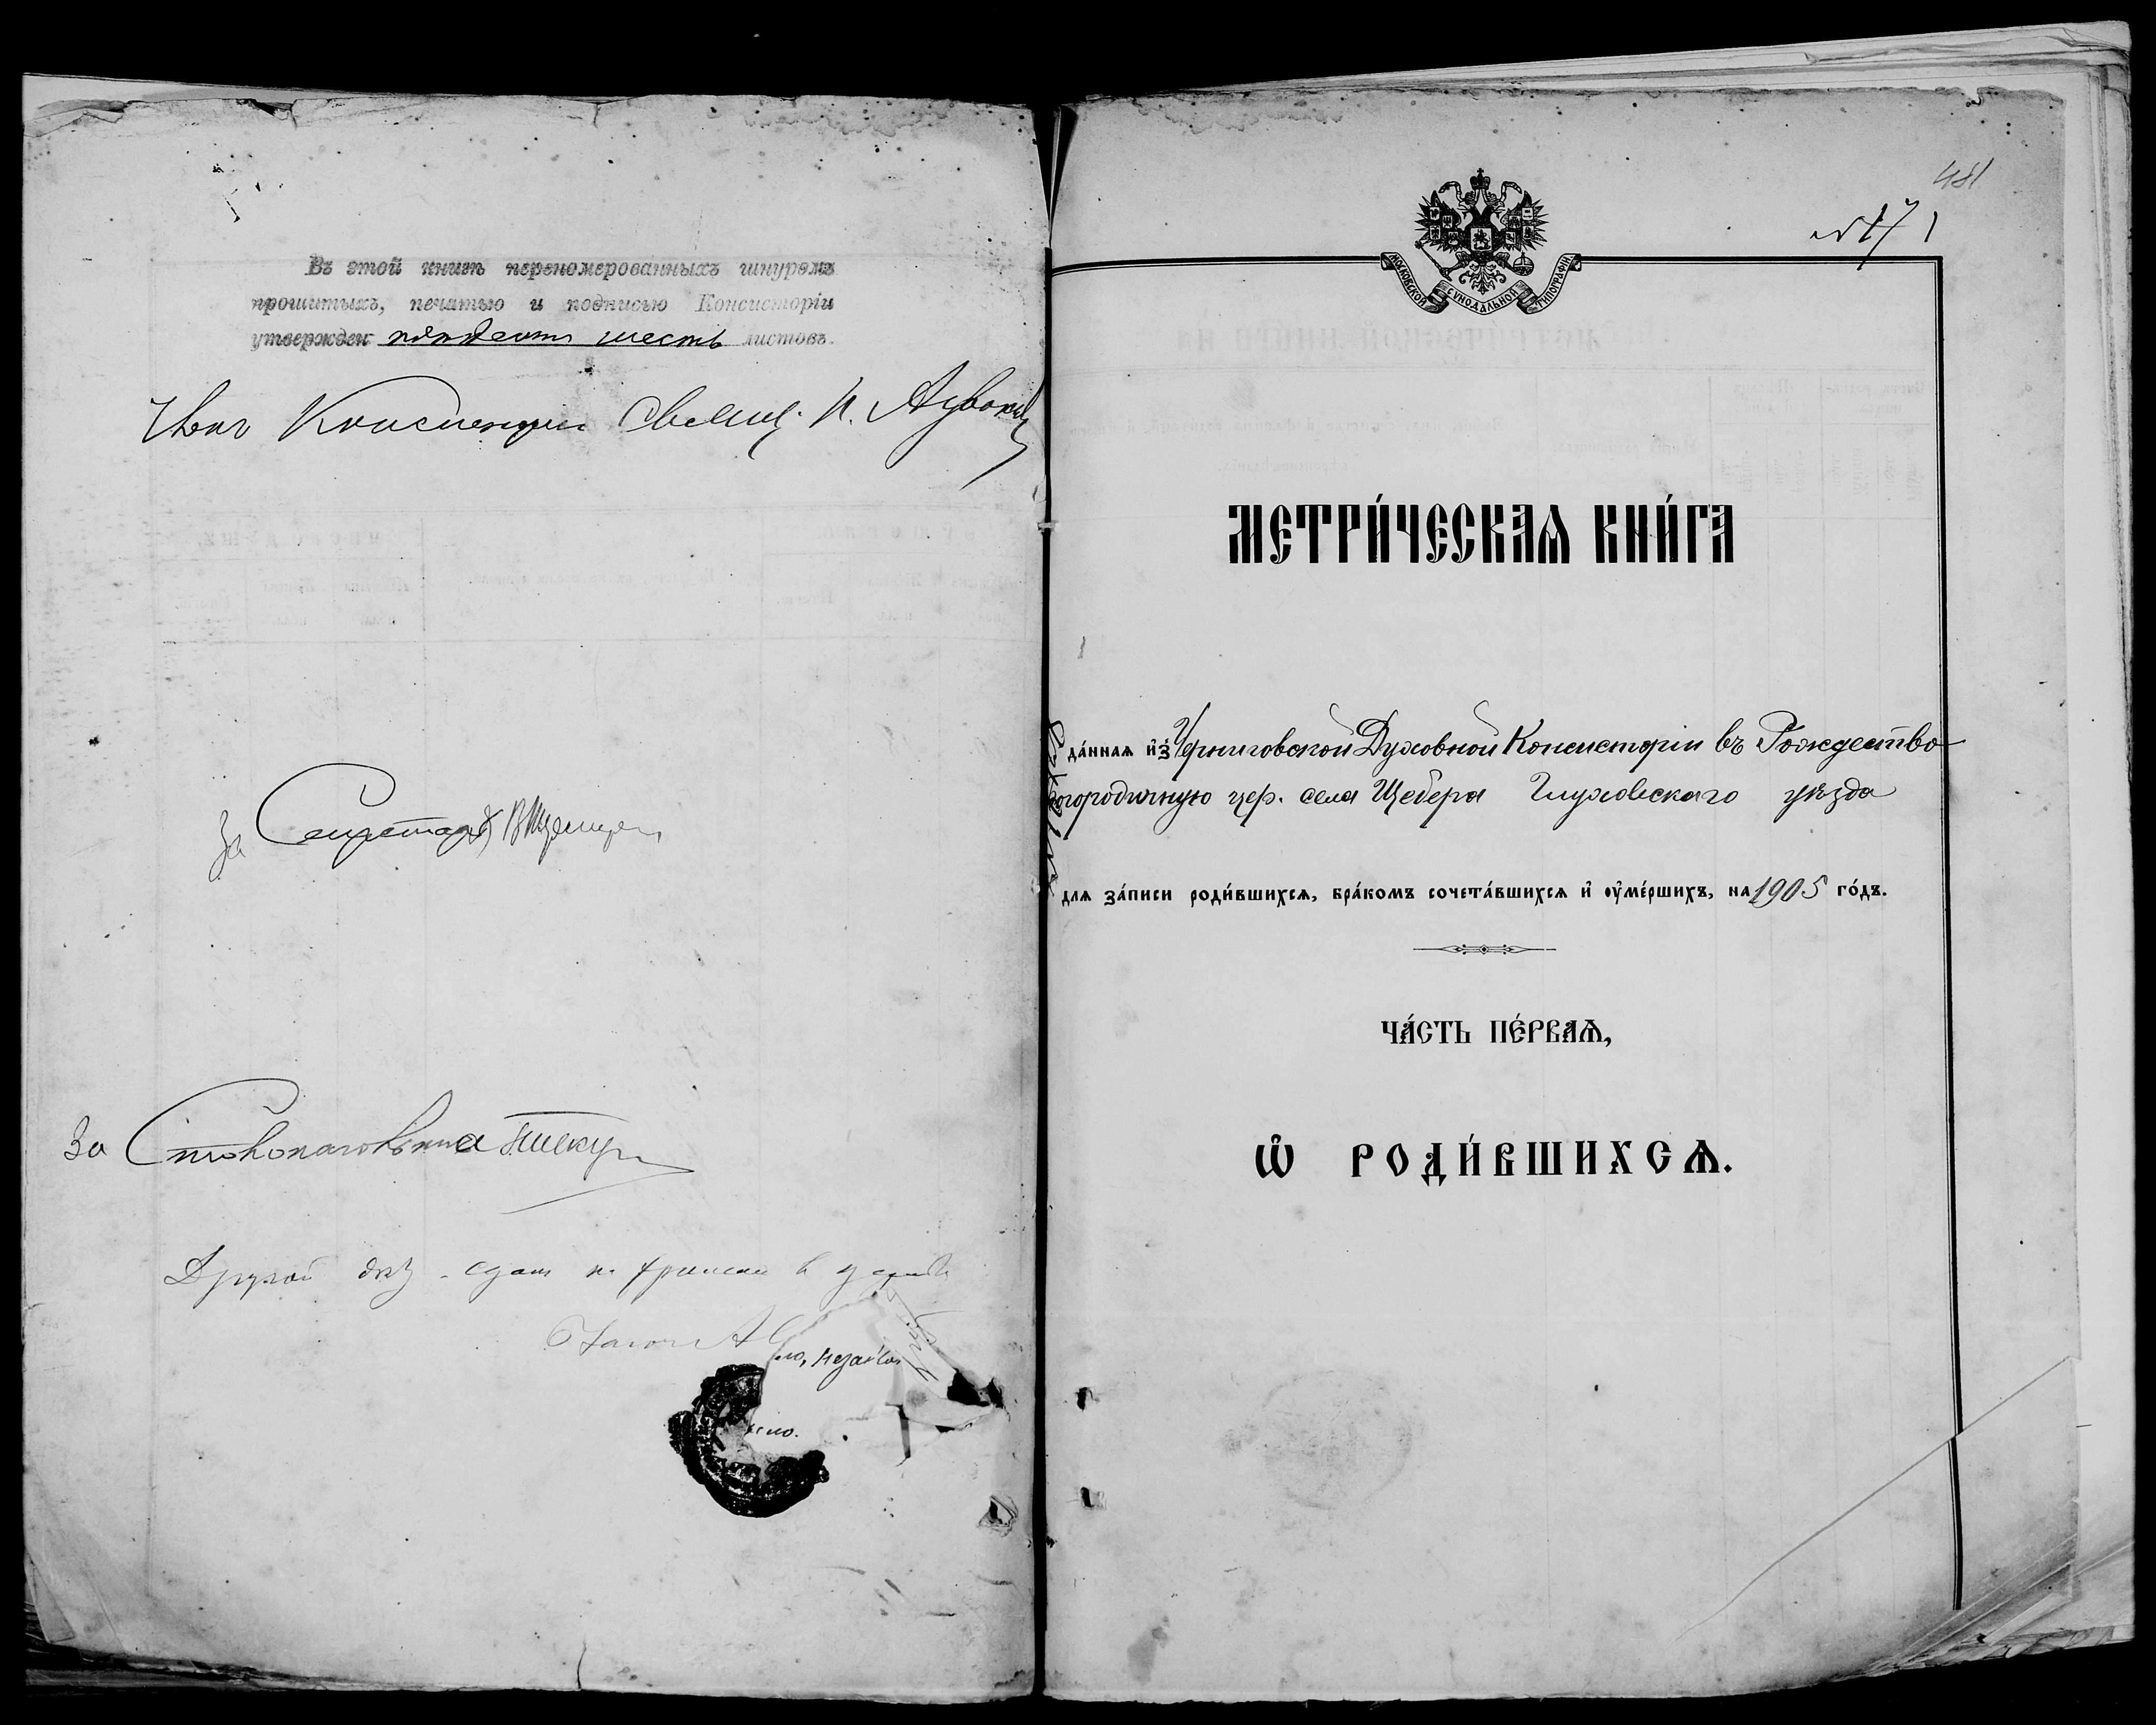 Въ этой книгѣ переномерованныхъ шнуромъ
прошитыхъ, печатью и подписью Консисторіи
утвержден пятдесятъ шесть листовъ.
Членъ Консисторіи Священ. П.
За Секретаря
За Столоначальника
Другой экз.
481
№ 17 1
МОСКОВСКОЙ СУНОДАЛЬНОЙ ТИПОГРАФІИ
МЕТРИ́ЧЕСКАѦ КНИ́ГА
да́ннаѧ и҆з̾ Черниговской Духовной Консисторіи въ Рождество-
богородичную цер. села Щебера Глуховскаго уѣзда
для за́писи роди́вшихсѧ, бра́комъ сочета́вшихсѧ и҆ ᲂу҆ме́ршихъ, на 1905 го́дъ.
ЧА́СТЬ ПЕ́РВАѦ,
Ѡ҆ РОДИ́ВШИХСѦ.